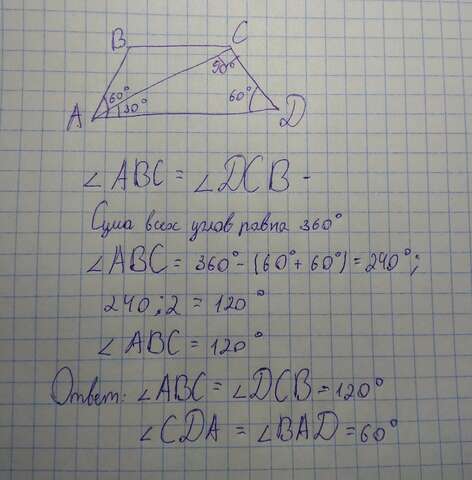 B C
90°
60° 60°
A 30° D
∠ABC = ∠DCB -
Сума всех углов равна 360°
∠ABC = 360° - (60° + 60°) = 240°;
240 : 2 = 120°
∠ABC = 120°
Ответ: ∠ABC = ∠DCB = 120°
∠CDA = ∠BAD = 60°